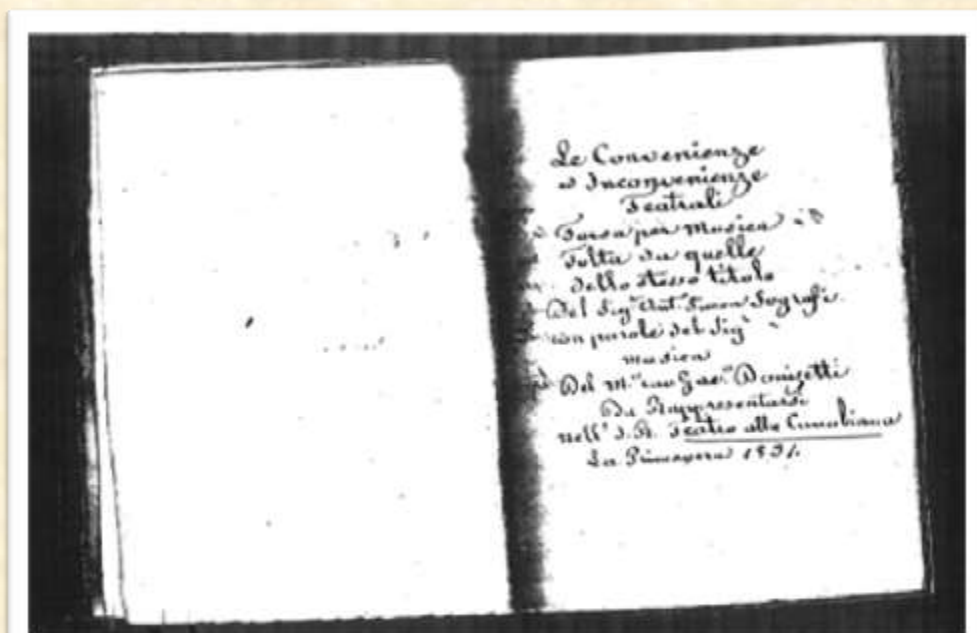 Le Convenienze
ed Inconvenienze
Teatrali
Farsa per Musica
Tolta da quelle
dello stesso titolo
Del Sig.r Ant. Simon Sografi
con parole del Sig.r
musica
Del M.o Gae.o Donizetti
Da Rappresentarsi
nell' I. R. Teatro alla Canobiana
La Primavera 1831.